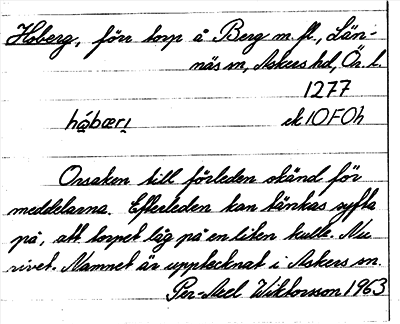 Hoberg, förr torp å Berg m fl, Län-
näs sn, Askers hd, Ör. l.
1277
hó̱bærı ek 10F0h
Orsaken till förleden okänd för
meddelarna. Efterleden kan tänkas syfta
på, att torpet låg på en liten kulle. Nu
rivet. Namnet är upptecknat i Askers sn.
Per-Axel Wiktorsson 1963